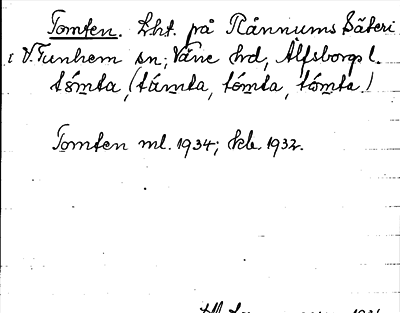 Tomten. Lht. på Rånnums Säteri
i V. Tunhem sn, Väne hd, Älfsborgs l.
tómta, (támta, tómta, tómta.)
Tomten ml. 1934; kb. 1932.